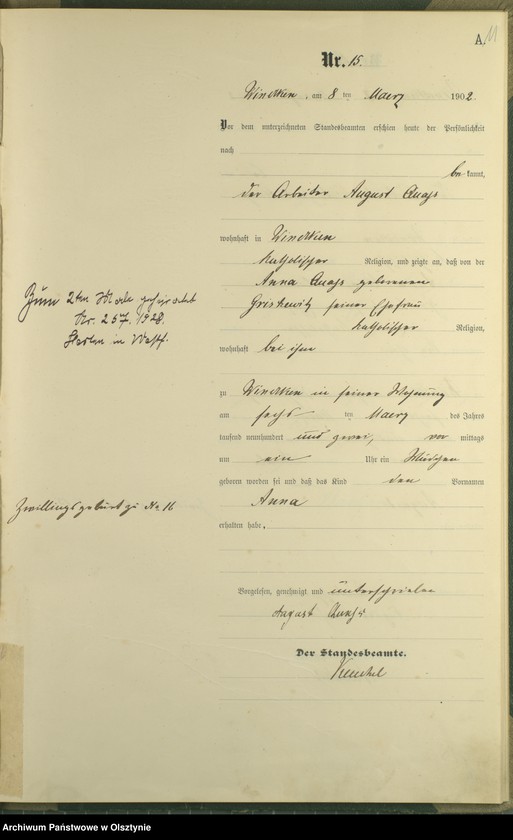 A. 11
Nr. 15.
Windtken, am 8 ten Maerz 1902.
Vor dem unterzeichneten Standesbeamten erschien heute, der Persönlichkeit
nach
be kannt,
der Arbeiter August Quass
wohnhaft in Windtken
katholischer Religion, und zeigte an, daß von der
Anna Quass geborenen
seiner Ehefrau
katholischer Religion,
wohnhaft bei ihm
zu Windtken in seiner Wohnung
am sechs ten Maerz des Jahres
tausend neunhundert und zwei, vor mittags
um ein Uhr ein Mädchen
geboren worden sei und daß das Kind den Vornamen
Anna
erhalten habe.
Vorgelesen, genehmigt und unterschrieben
August Quass
Der Standesbeamte.
Zum 2ten Male geheiratet
Nr. 257. 1928.
Herten in Westf.
Zwillingsgeburt zu No 16
Archiwum Państwowe w Olsztynie